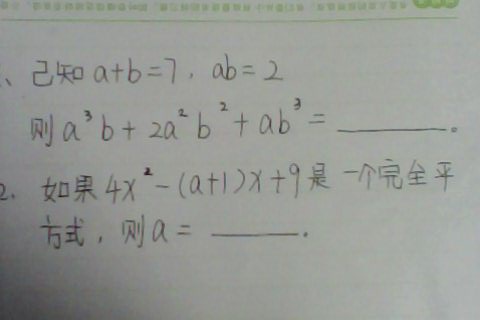 、已知 a+b=7，ab=2
则 a³b+2a²b²+ab³=______。
2、如果 4x²-(a+1)x+9 是一个完全平
方式，则 a=______.